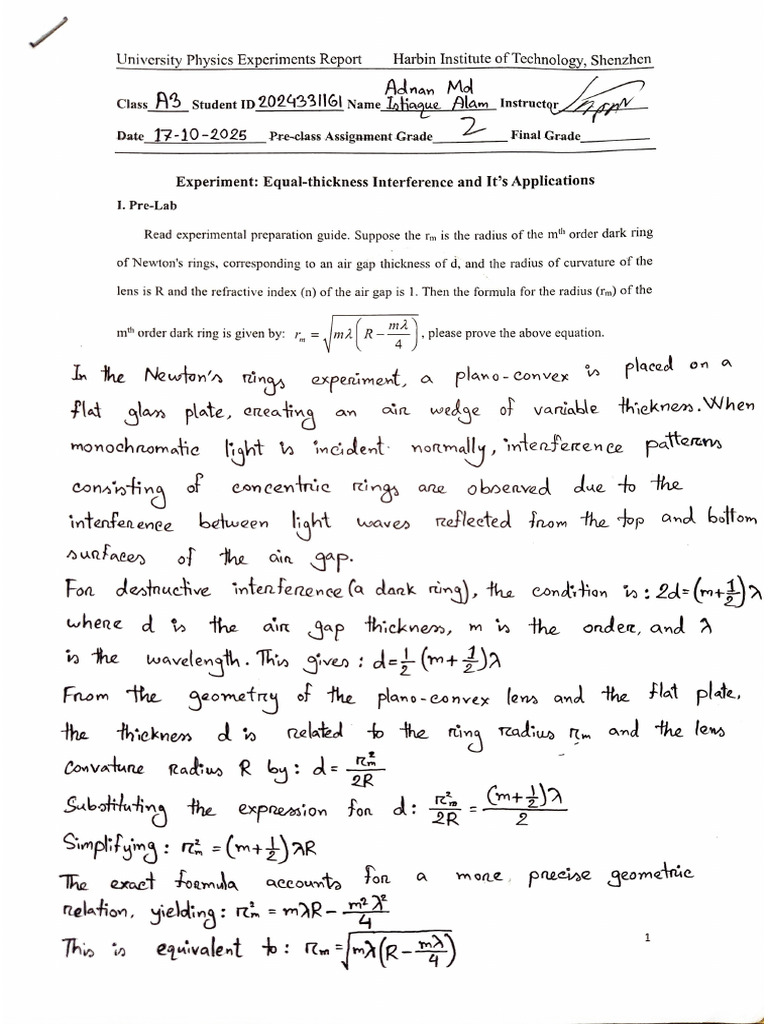 University Physics Experiments Report Harbin Institute of Technology, Shenzhen
Class A3 Student ID 2024331161 Name Adnan Md Istiaque Alam Instructor
Date 17-10-2025 Pre-class Assignment Grade 2 Final Grade
Experiment: Equal-thickness Interference and It's Applications
I. Pre-Lab
Read experimental preparation guide. Suppose the rₘ is the radius of the mᵗʰ order dark ring
of Newton's rings, corresponding to an air gap thickness of d, and the radius of curvature of the
lens is R and the refractive index (n) of the air gap is 1. Then the formula for the radius (rₘ) of the
mᵗʰ order dark ring is given by: rₘ = √(mλ(R − mλ/4)), please prove the above equation.
In the Newton's rings experiment, a plano-convex is placed on a
flat glass plate, creating an air wedge of variable thickness. When
monochromatic light is incident normally, interference patterns
consisting of concentric rings are observed due to the
interference between light waves reflected from the top and bottom
surfaces of the air gap.
For destructive interference (a dark ring), the condition is: 2d=(m+1/2)λ
where d is the air gap thickness, m is the order, and λ
is the wavelength. This gives: d=1/2(m+1/2)λ
From the geometry of the plano-convex lens and the flat plate,
the thickness d is related to the ring radius rₘ and the lens
convature radius R by: d = rₘ²/2R
Substituting the expression for d: rₘ²/2R = (m+1/2)λ/2
Simplifying: rₘ² = (m+1/2)λR
The exact formula accounts for a more precise geometric
relation, yielding: rₘ² = mλR − m²λ²/4
This is equivalent to: rₘ = √(mλ(R − mλ/4))
1